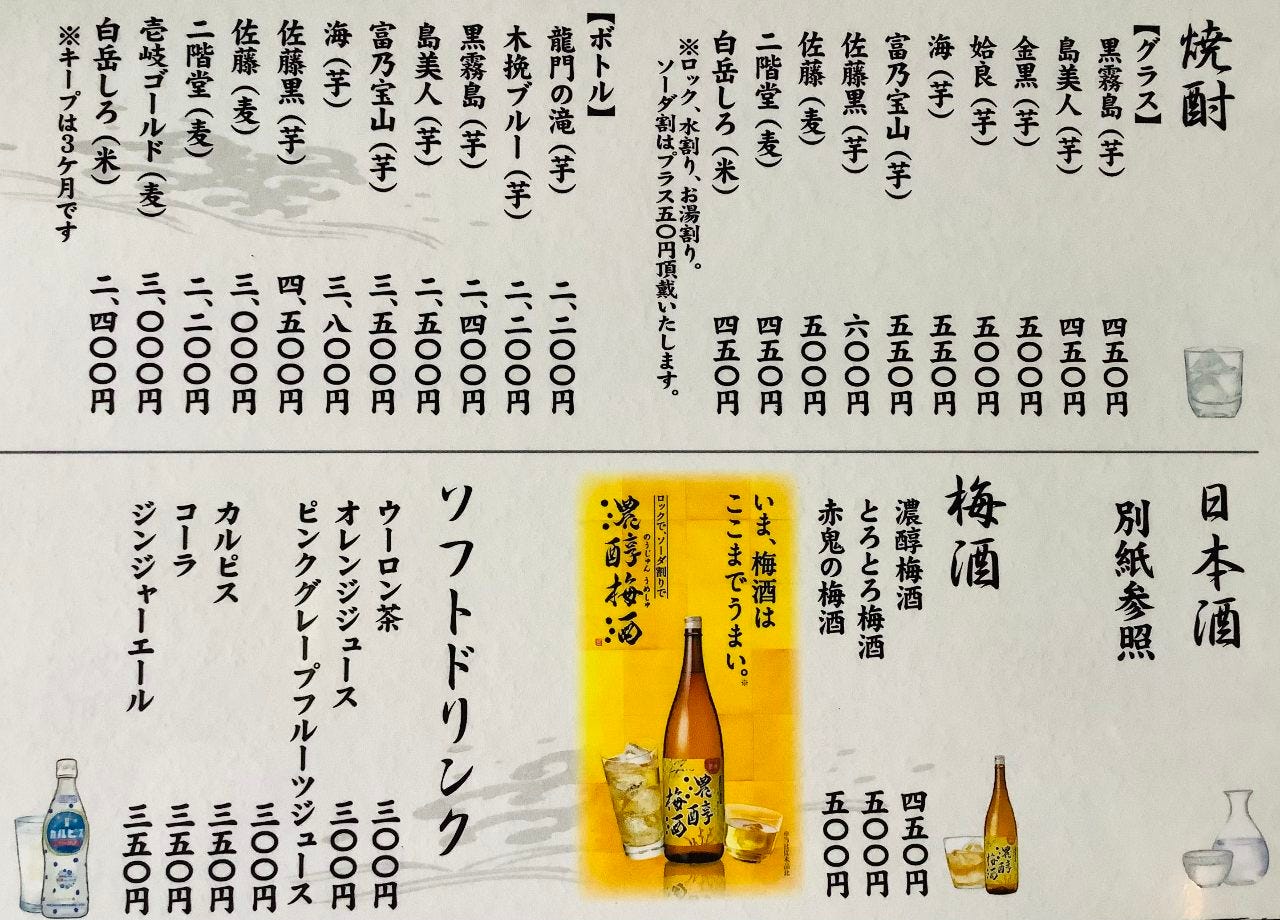 焼酎
【グラス】
黒霧島（芋） 四五〇円
島美人（芋） 四五〇円
金黒（芋） 五〇〇円
姶良（芋） 五〇〇円
海（芋） 五五〇円
富乃宝山（芋） 五五〇円
佐藤黒（芋） 六〇〇円
佐藤（麦） 五〇〇円
二階堂（麦） 四五〇円
白岳しろ（米） 四五〇円
※ロック、水割り、お湯割り。
ソーダ割は、プラス五〇円頂戴いたします。
【ボトル】
龍門の滝（芋） 二、二〇〇円
木挽ブルー（芋） 二、二〇〇円
黒霧島（芋） 二、四〇〇円
島美人（芋） 二、五〇〇円
富乃宝山（芋） 三、五〇〇円
海（芋） 三、八〇〇円
佐藤黒（芋） 四、五〇〇円
佐藤（麦） 三、〇〇〇円
二階堂（麦） 二、二〇〇円
壱岐ゴールド（麦） 三、〇〇〇円
白岳しろ（米） 二、四〇〇円
※キープは３ケ月です
日本酒
別紙参照
梅酒
濃醇梅酒 四五〇円
とろとろ梅酒 五〇〇円
赤鬼の梅酒 五〇〇円
いま、梅酒は
ここまでうまい。※
ロックで、ソーダ割りで
濃醇梅酒
のうじゅん うめしゅ
濃醇
梅酒
濃醇
梅酒
ソフトドリンク
ウーロン茶 三〇〇円
オレンジジュース 三〇〇円
ピンクグレープフルーツジュース
三〇〇円
カルピス 三五〇円
コーラ 三五〇円
ジンジャーエール 三五〇円
カルピス